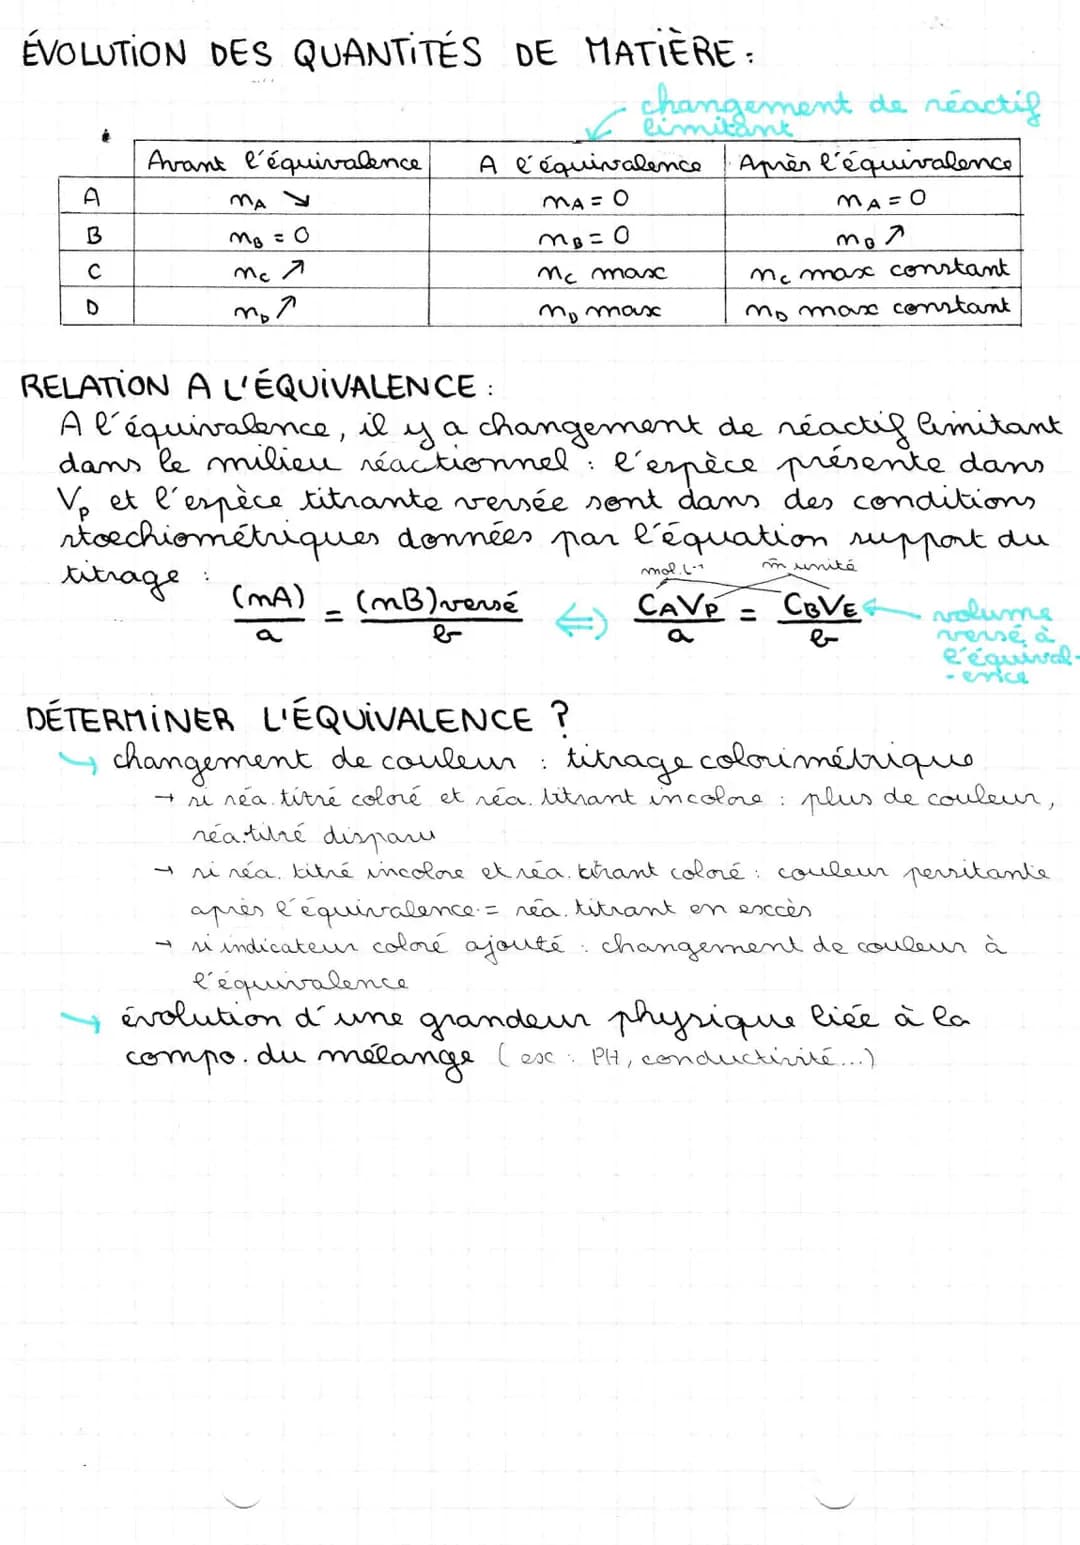 ÉVOLUTION DES QUANTITÉS DE MATIÈRE :
changement de réactif
limitant
Avant l'équivalence A l'équivalence Après l'équivalence
A nA ↘ nA = 0 nA = 0
B nB = 0 nB = 0 nB ↗
C nC ↗ nC max nC max constant
D nD ↗ nD max nD max constant
RELATION A L'ÉQUIVALENCE :
A l'équivalence, il y a changement de réactif limitant
dans le milieu réactionnel : l'espèce présente dans
Vp et l'espèce titrante versée sont dans des conditions
stoechiométriques données par l'équation support du
titrage :
mol.L-1 m̂ unité
(nA)/a = (nB)versé/b ⇔ CAVP/a = CBVE/b
volume
versé à
l'équival-
-ence
DÉTERMINER L'ÉQUIVALENCE ?
↪ changement de couleur : titrage colorimétrique
→ si réa. titré coloré et réa. titrant incolore : plus de couleur,
réa. titré disparu
→ si réa. titré incolore et réa. titrant coloré : couleur persitante
après l'équivalence = réa. titrant en excès
→ si indicateur coloré ajouté : changement de couleur à
l'équivalence
↪ évolution d'une grandeur physique liée à la
compo. du mélange (ex : PH, conductivité...)